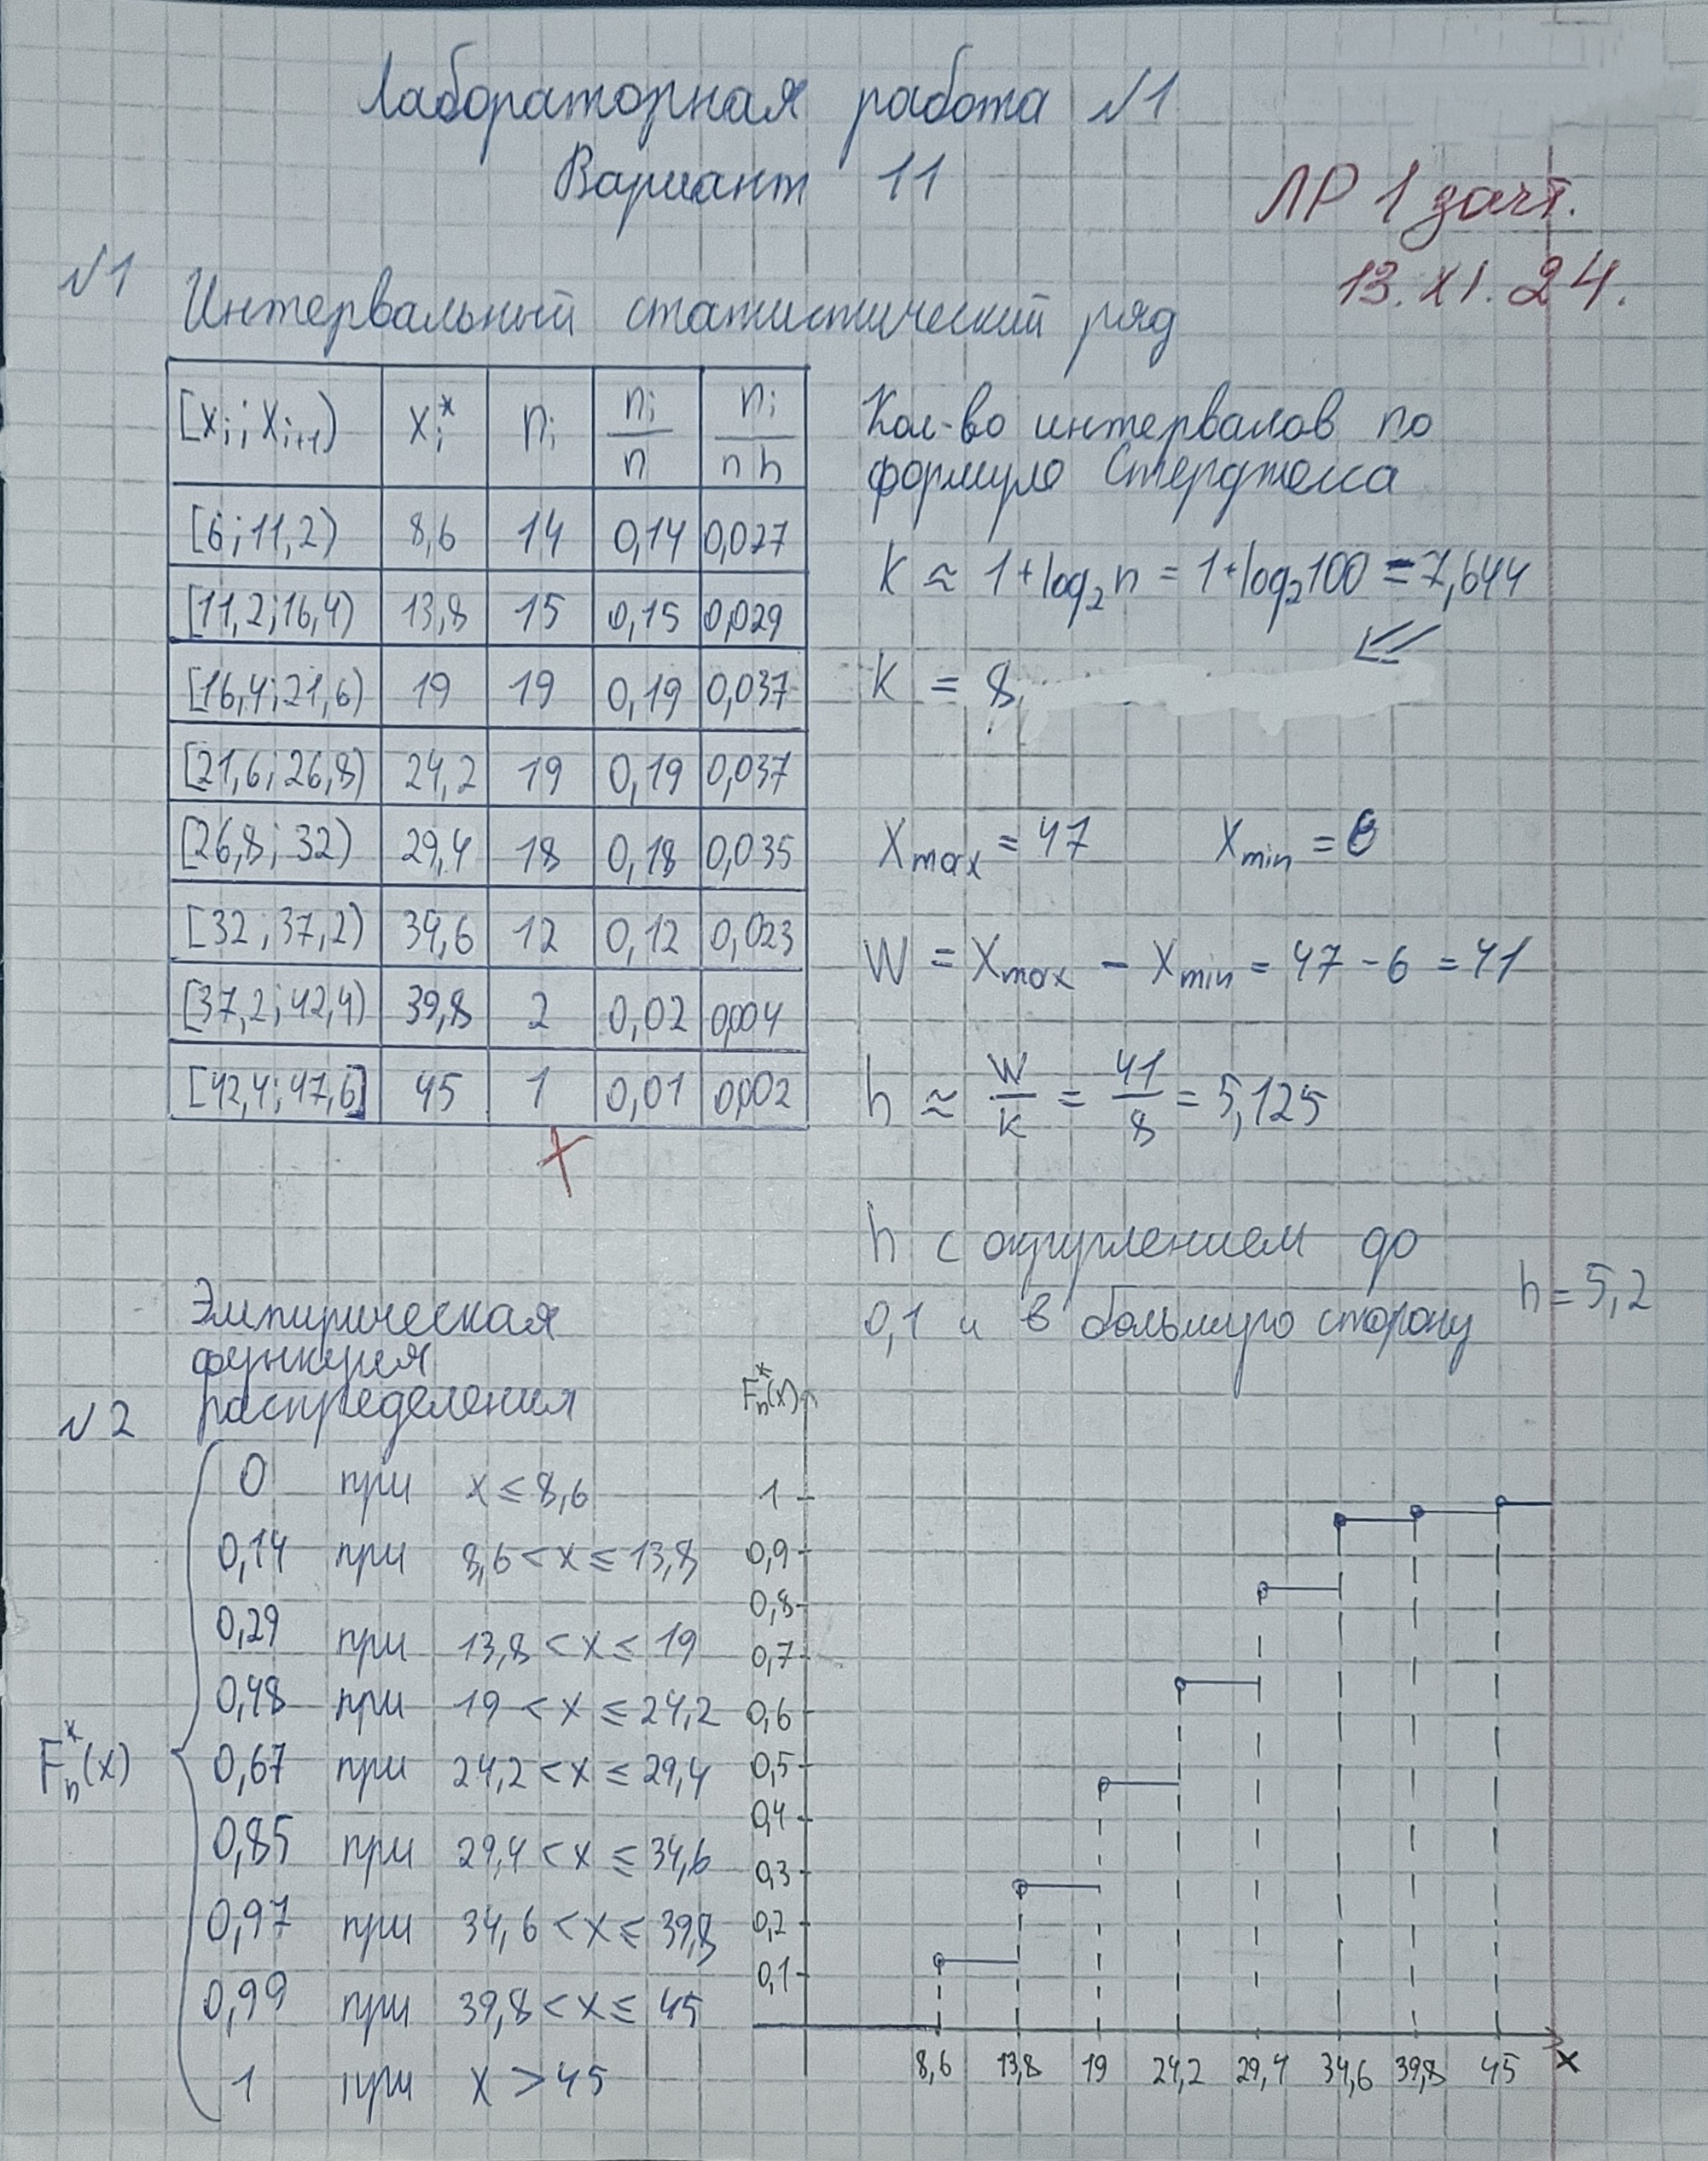 Лабораторная работа №1
Вариант 11
ЛР 1 зачт.
13.XI.24.
№1 Интервальный статистический ряд
[xi; xi+1) xi* ni ni/n ni/nh
[6; 11,2) 8,6 14 0,14 0,027
[11,2; 16,4) 13,8 15 0,15 0,029
[16,4; 21,6) 19 19 0,19 0,037
[21,6; 26,8) 24,2 19 0,19 0,037
[26,8; 32) 29,4 18 0,18 0,035
[32; 37,2) 34,6 12 0,12 0,023
[37,2; 42,4) 39,8 2 0,02 0,004
[42,4; 47,6] 45 1 0,01 0,002
Кол-во интервалов по
формуле Стерджесса
k ≈ 1+log₂n = 1+log₂100 = 7,644
k = 8
Xmax = 47 Xmin = 6
W = Xmax - Xmin = 47 - 6 = 41
h ≈ W/k = 41/8 = 5,125
h с округлением до
0,1 и в большую сторону h = 5,2
№2 Эмпирическая
функция
распределения
Fn*(x)
0 при x ≤ 8,6
0,14 при 8,6 < x ≤ 13,8
0,29 при 13,8 < x ≤ 19
0,48 при 19 < x ≤ 24,2
0,67 при 24,2 < x ≤ 29,4
0,85 при 29,4 < x ≤ 34,6
0,97 при 34,6 < x ≤ 39,8
0,99 при 39,8 < x ≤ 45
1 при x > 45
Fn*(x)
1
0,9
0,8
0,7
0,6
0,5
0,4
0,3
0,2
0,1
8,6 13,8 19 24,2 29,4 34,6 39,8 45 x